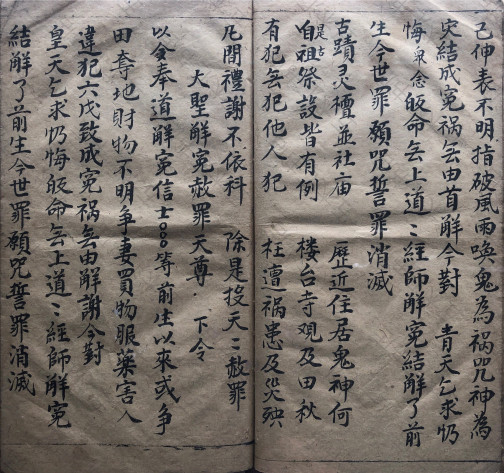 己伸表不明指破風雨喚鬼為禍咒神為
灾結成寃祸無由首觧今對　青天乞求仍
悔眾念皈命無上道〻經師觧寃結觧了前
生今世罪願咒誓罪消滅
古蹟灵檀並社庙　歷近住居鬼神何
自古是祖祭設皆有例　楼台寺观及田秋
有犯無犯他人犯　枉遭祸患及災殃
凡間禮謝不依科　除是投天〻赦罪
大聖觧寃赦罪天尊　下令
以今奉道觧寃信士○○○等前生以來或争
田夺地財物不明争妻買物服薬害人
違犯六戊致成寃祸無由觧謝今對
皇天乞求仍悔皈命無上道〻經師觧寃
結觧了前生今世罪願咒誓罪消滅